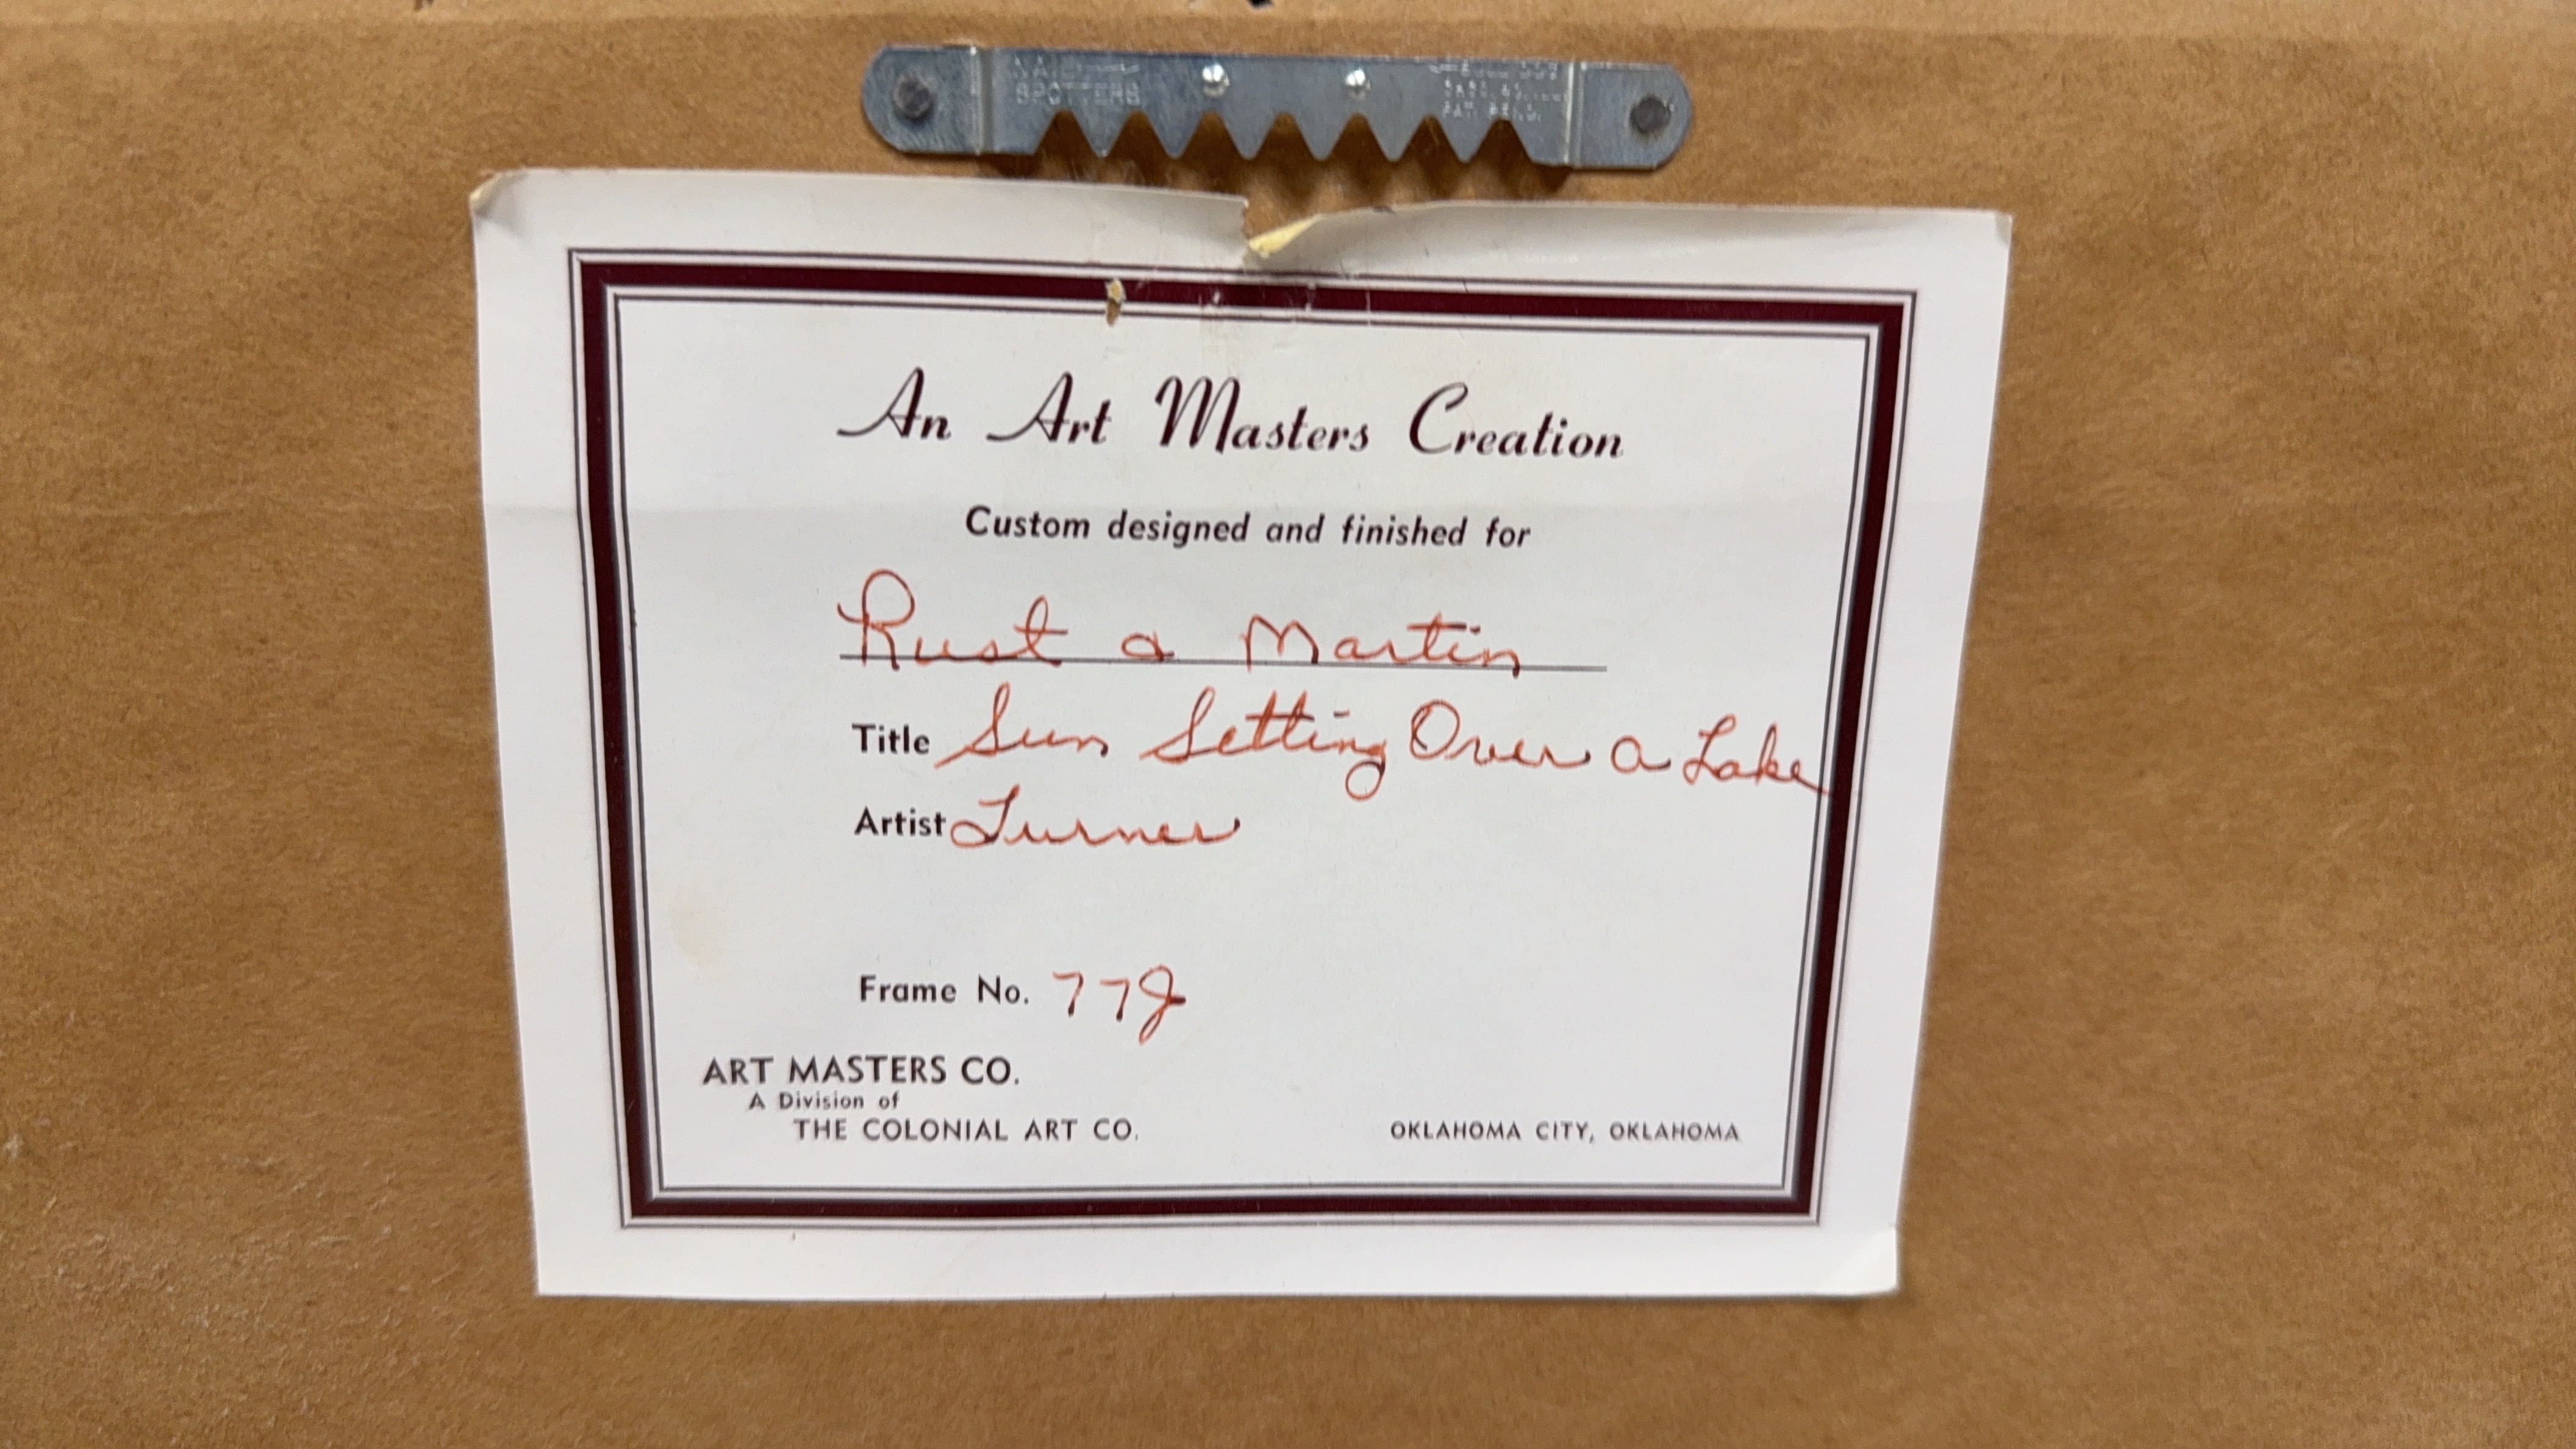 NAIL
SPOTTERS
An Art Masters Creation
Custom designed and finished for
Rust & Martin
Title Sun Setting Over a Lake
Artist Turner
Frame No. 77J
ART MASTERS CO.
A Division of
THE COLONIAL ART CO.
OKLAHOMA CITY, OKLAHOMA